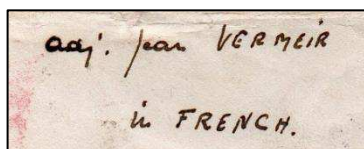 adj. par VERMEIR
in FRENCH.